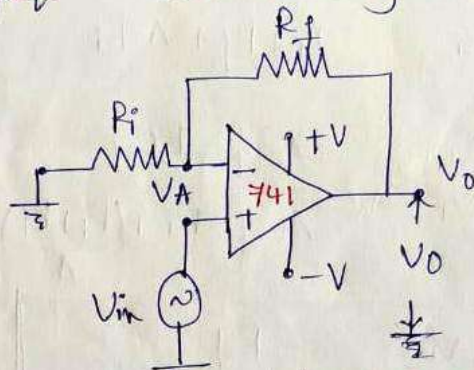 Rf
Ri
+V
VA
741
Vo
Vo
-V
Vin